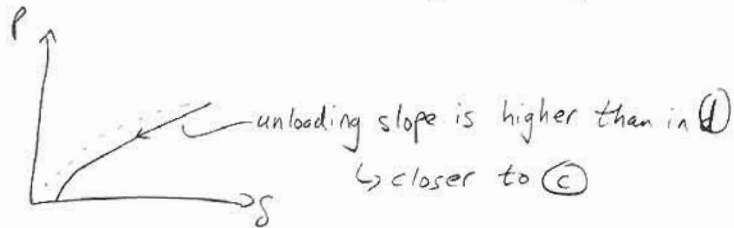 P
unloading slope is higher than in ⓓ
↳ closer to ⓒ
δ